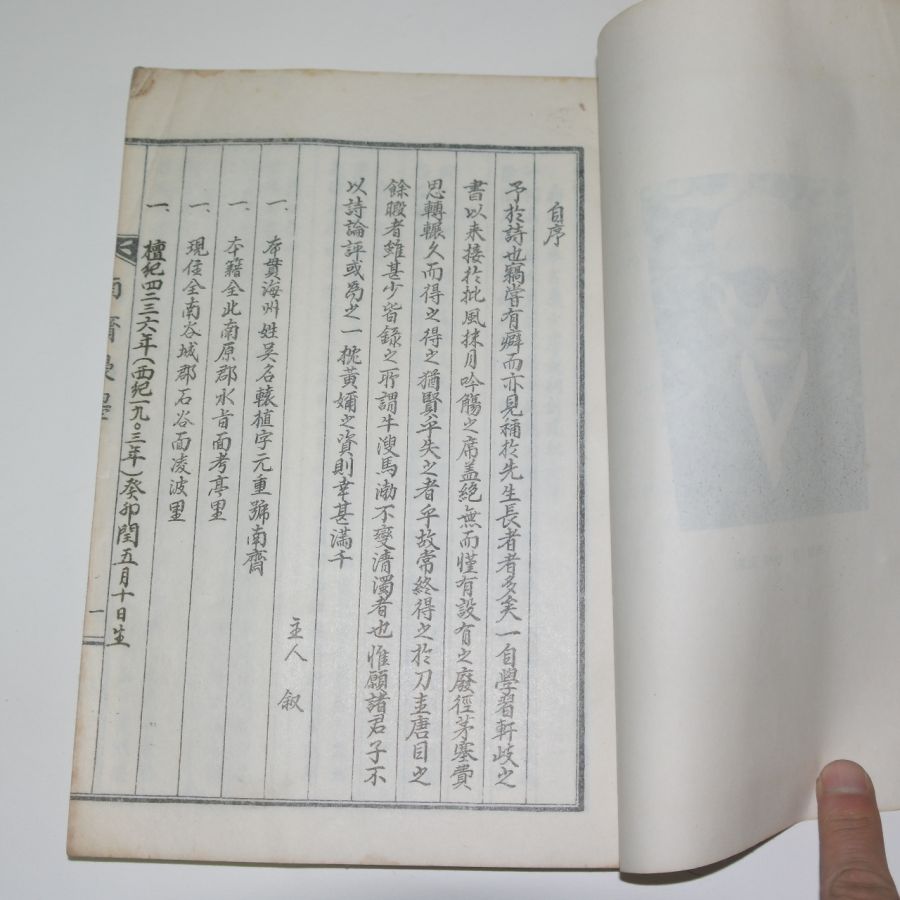 自序
予於詩也竊嘗有癖而亦見稱於先生長者者多矣一自學習軒岐之
書以来接於批風抹月吟觴之席盖絕無而僅有設有之廢徑茅塞費
思轉輾久而得之得之猶賢乎失之者乎故常終得之於刀圭唐目之
餘暇者雖甚少皆錄之所謂牛溲馬渤不變淸濁者也惟願諸君子不
以詩論評或爲之一枕黃嬭之資則幸甚滿千
主人 叙
一、本貫海州姓吳名轅植字元重號南齋
一、本籍全北南原郡水旨面考亭里
一、現住全南谷城郡石谷面凌波里
一、檀紀四二三六年(西紀一九〇三年)癸卯閏五月十日生
南齋
一